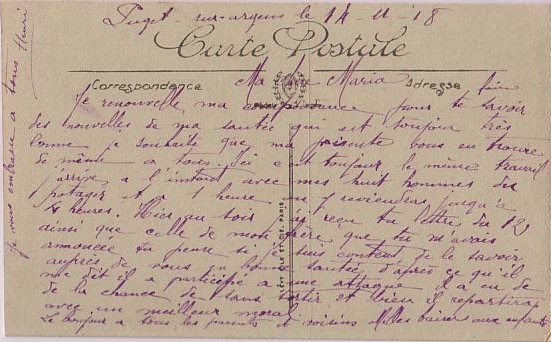 Puget-sur-argens le 14-11-18
Carte Postale
Correspondance
Adresse
Ma chère Maria
Je renouvelle ma correspondance pour te faire savoir
des nouvelles de ma santée qui est toujour très
bonne je souhaite que ma présente vous en trouve
de même a tous. ici c est toujour le même travail
j arrive a l'instant avec mes huit hommes du
potager et 1 heure y reviendera jusqu'à
4 heures. Hier au soir j ai reçu ta lettre du 12
ainsi que celle de mon frère que tu m'avais
annoncée tu pense si je suis content de le savoir
auprès de vous en bonne santée d'après ce qu'il
me dit il a participé a une attaque il a eu de
de la chance de s'en sortir et bien il repartira
avec un meilleur moral
Le bonjour a tous les parents et voisins Milles baiser aux enfants
Je vous embrasse a tous Henri